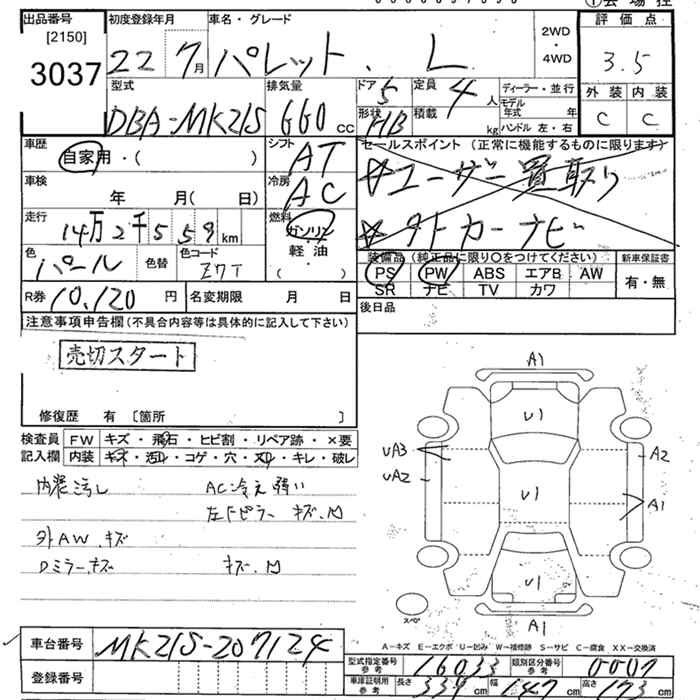 出品番号 [2150] 3037
初度登録年月 22 7月
車名・グレード パレット . L
2WD ・ 4WD
評価点 3.5
外装 内装
C C
型式 DBA-MK21S
排気量 660 cc
ドア 5 形状 HB
定員 4 人
積載 kg
ディーラー・並行
モデル年式 年
ハンドル 左・右
車歴 自家用・( )
シフト AT
セールスポイント (正常に機能するものに限ります)
☆ユーザー買取り
☆外トカーナビ
車検 年 月( 日)
冷房 AC
走行 14万2千559km
燃料 ガソリン・軽油 ( )
色 パール 色替 色コード Z7T
装備品 (純正品に限り○をつけてください)
PS PW ABS エアB AW
SR ナビ TV カワ
新車保証書 有・無
R券 10,120 円
名変期限 月 日
後日品
注意事項申告欄(不具合内容等は具体的に記入して下さい)
売切スタート
修復歴 有 [箇所 ]
検査員記入欄
FW キズ・飛石・ヒビ割・リペア跡・×要
内装 キズ・汚れ・コゲ・穴・スレ・キレ・破レ
内装汚レ AC冷え弱い
左Fピラー キズ.凹
外AW キズ
Dミラーキズ キズ.凹
A1
U1
UA3
UA2
A2
U1
A1
U1
スペア
A1
A-キズ E-エクボ U-凹み W-補修跡 S-サビ C-腐食 XX-交換済
車台番号 MK21S-207124
登録番号
型式指定番号 参考 16033
類別区分番号 参考 0007
車庫証明用 参考 長さ 339cm 幅 147cm 高さ 173cm